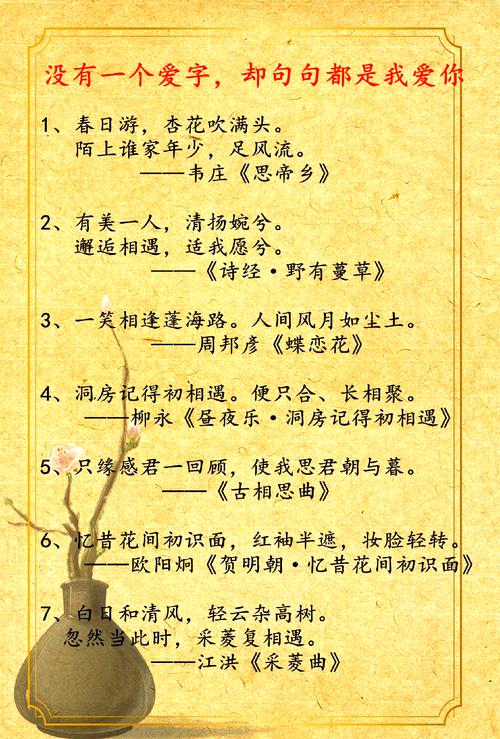 没有一个爱字，却句句都是我爱你
1、春日游，杏花吹满头。
陌上谁家年少，足风流。
——韦庄《思帝乡》
2、有美一人，清扬婉兮。
邂逅相遇，适我愿兮。
——《诗经·野有蔓草》
3、一笑相逢蓬海路。人间风月如尘土。
——周邦彦《蝶恋花》
4、洞房记得初相遇。便只合、长相聚。
——柳永《昼夜乐·洞房记得初相遇》
5、只缘感君一回顾，使我思君朝与暮。
——《古相思曲》
6、忆昔花间初识面，红袖半遮，妆脸轻转。
——欧阳炯《贺明朝·忆昔花间初识面》
7、白日和清风，轻云杂高树。
忽然当此时，采菱复相遇。
——江洪《采菱曲》